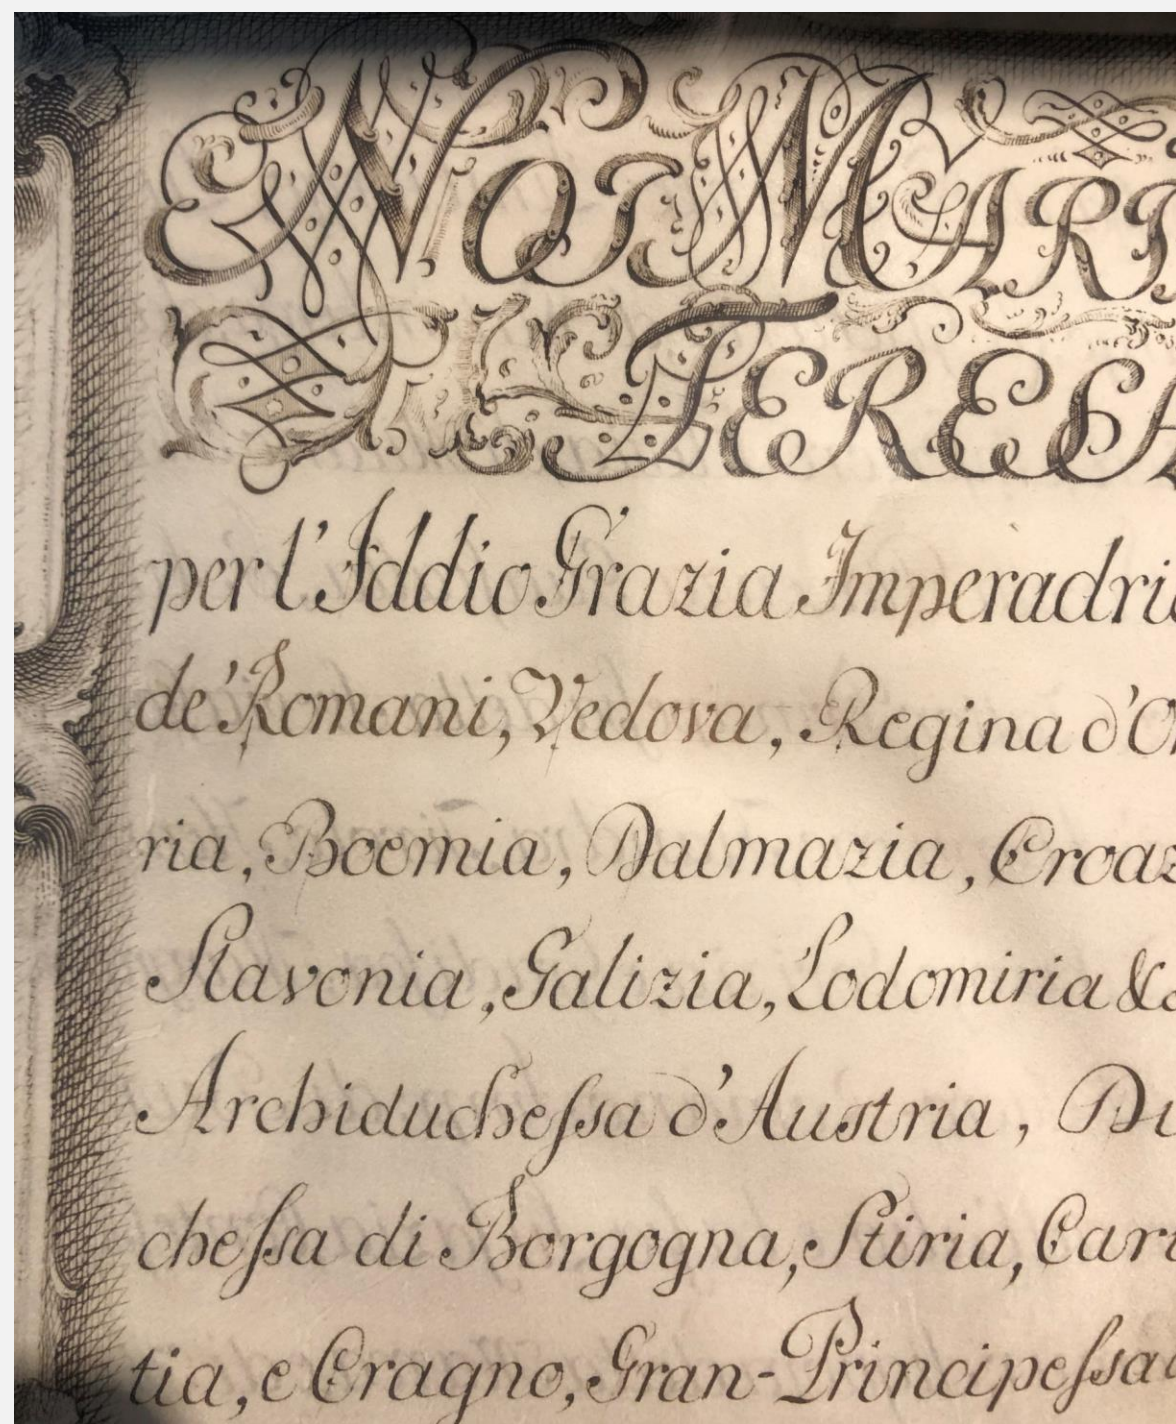 NOI MARI
TERESA
per l'Iddio Grazia Imperadric
de' Romani, Vedova, Regina d'On
ria, Boemia, Dalmazia, Croaz
Slavonia, Galizia, Lodomiria &c
Archiducheſsa d'Austria, Du
cheſsa di Borgogna, Stiria, Cari
tia, e Cragno, Gran-Principeſsa